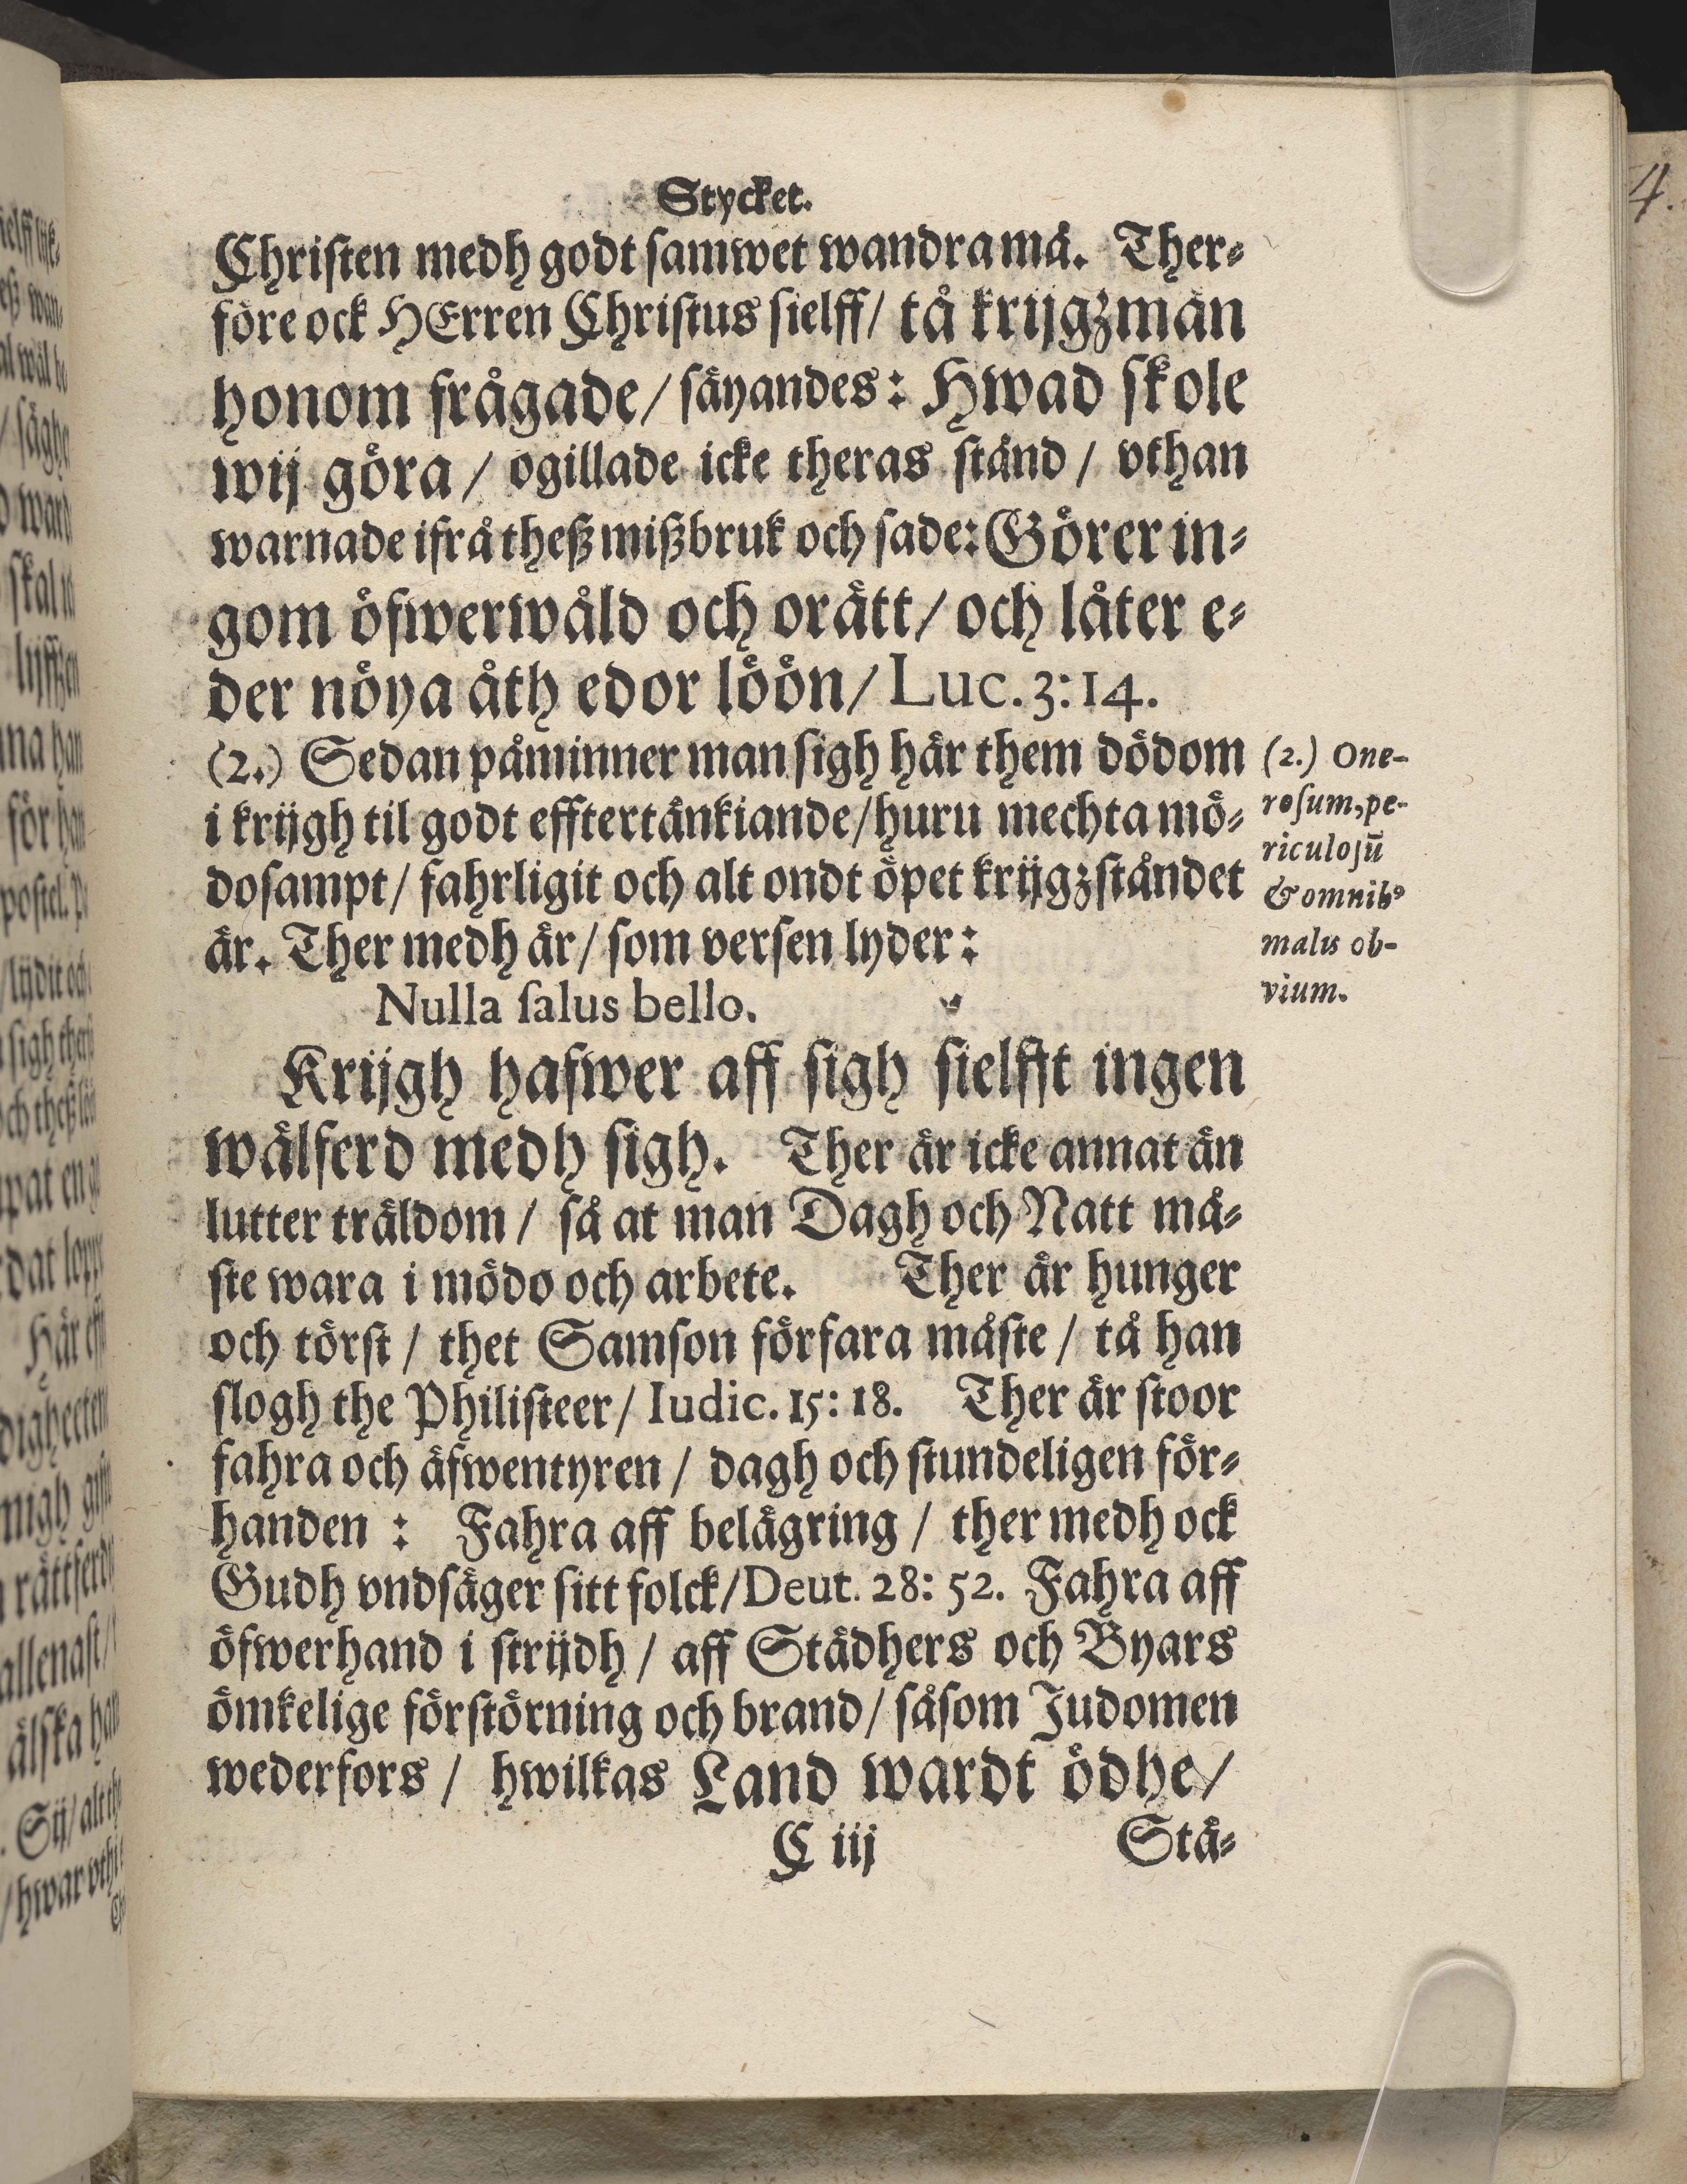 Stycket.
Christen medh godt samwet wandra må. Ther⸗
före ock HErren Christus sielff/ tå krijgzmän
honom frågade/ säyandes: Hwad skole
wij göra/ ogillade icke theras stånd/ vthan
warnade ifrå theß mißbruk och sade: Görer in⸗
gom öfwerwåld och orätt/ och låter e⸗
der nöya åth edor löön/ Luc. 3: 14.
(2.) Sedan påminner man sigh här them dödom
i krijgh til godt efftertänkiande/ huru mechta mö⸗
dosampt/ fahrligit och alt ondt öpet krijgzståndet
är. Ther medh är/ som versen lyder:
Nulla salus bello.
Krijgh hafwer aff sigh sielfft ingen
wälferd medh sigh. Ther är icke annat än
lutter träldom/ så at man Dagh och Natt må⸗
ste wara i mödo och arbete. Ther är hunger
och törst/ thet Samson förfara måste/ tå han
slogh the Philisteer/ Iudic. 15: 18. Ther är stoor
fahra och äfwentyren/ dagh och stundeligen för⸗
handen : Fahra aff belägring/ ther medh ock
Gudh vndsäger sitt folck/ Deut. 28: 52. Fahra aff
öfwerhand i strijdh/ aff Städhers och Byars
ömkelige förstörning och brand/ såsom Judomen
wederfors/ hwilkas Land wardt ödhe/
C iij Stä⸗
(2.) One-
rosum, pe-
riculosū
& omnibꝰ
malis ob-
vium.
4.